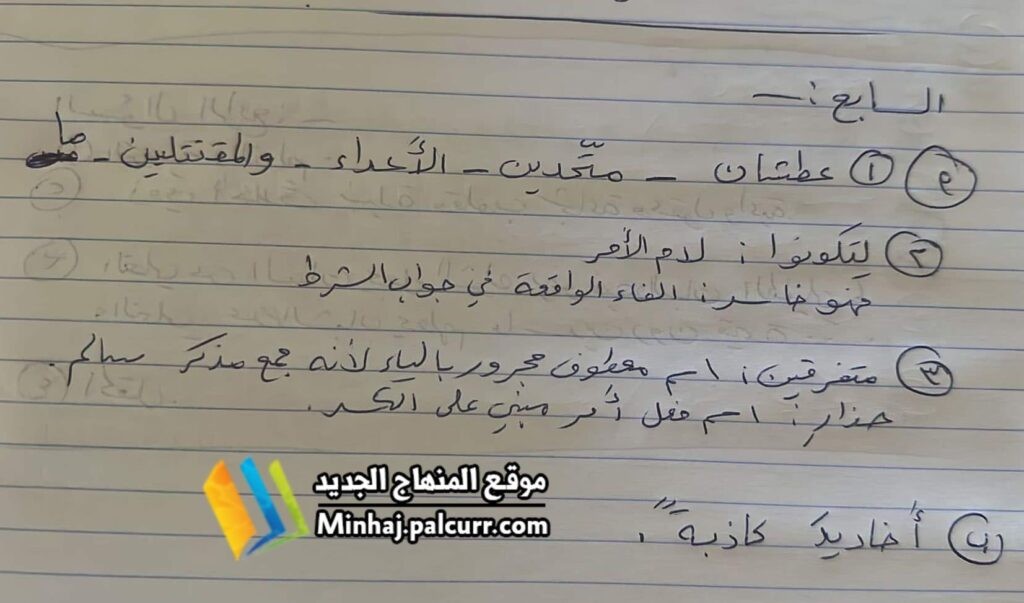 السابع :ـ
٩ ١ عطشان - متّحدين - الأعداء - والمقتتلين - ما
٢ لِتكونوا : لام الأمر
فهو خاسر : الفاء الواقعة في جواب الشرط
٣ متفرقين : اسم معطوف مجرور بالياء لأنه جمع مذكر سالم .
حذارِ : اسم فعل أمر مبني على الكسر .
٤ أخاديد كاذبةً .
موقع المنهاج الجديد
Minhaj.palcurr.com